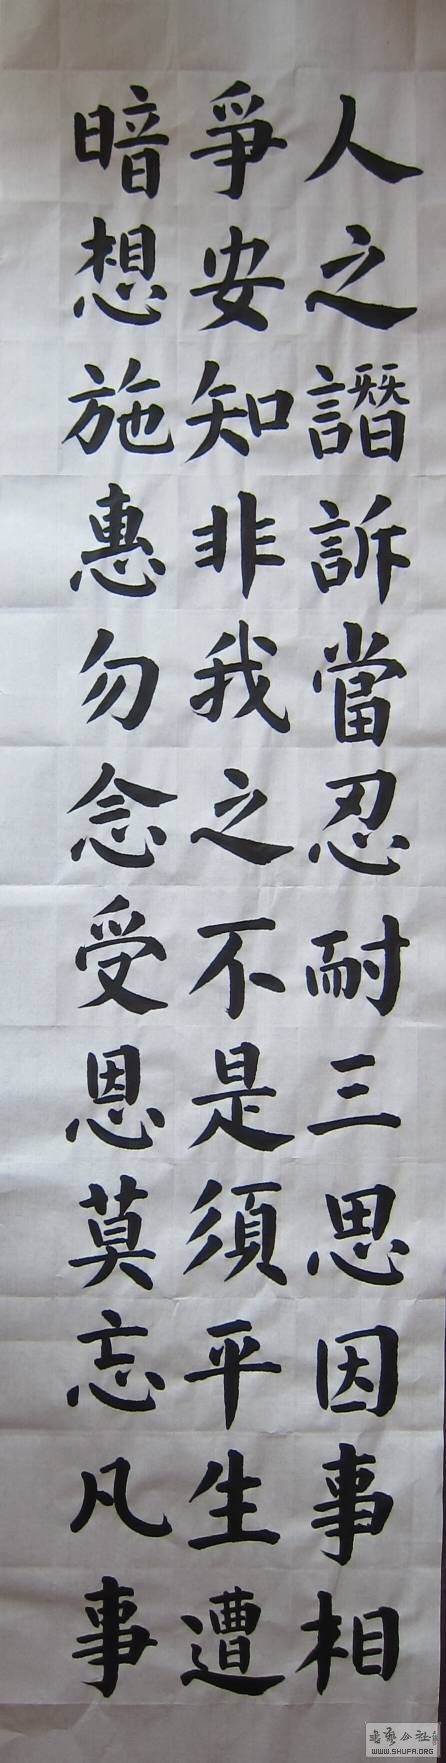 人之譖訴當忍耐三思因事相
爭安知非我之不是須平生遭
暗想施惠勿念受恩莫忘凡事
书艺公社
WWW.SHUFA.ORG